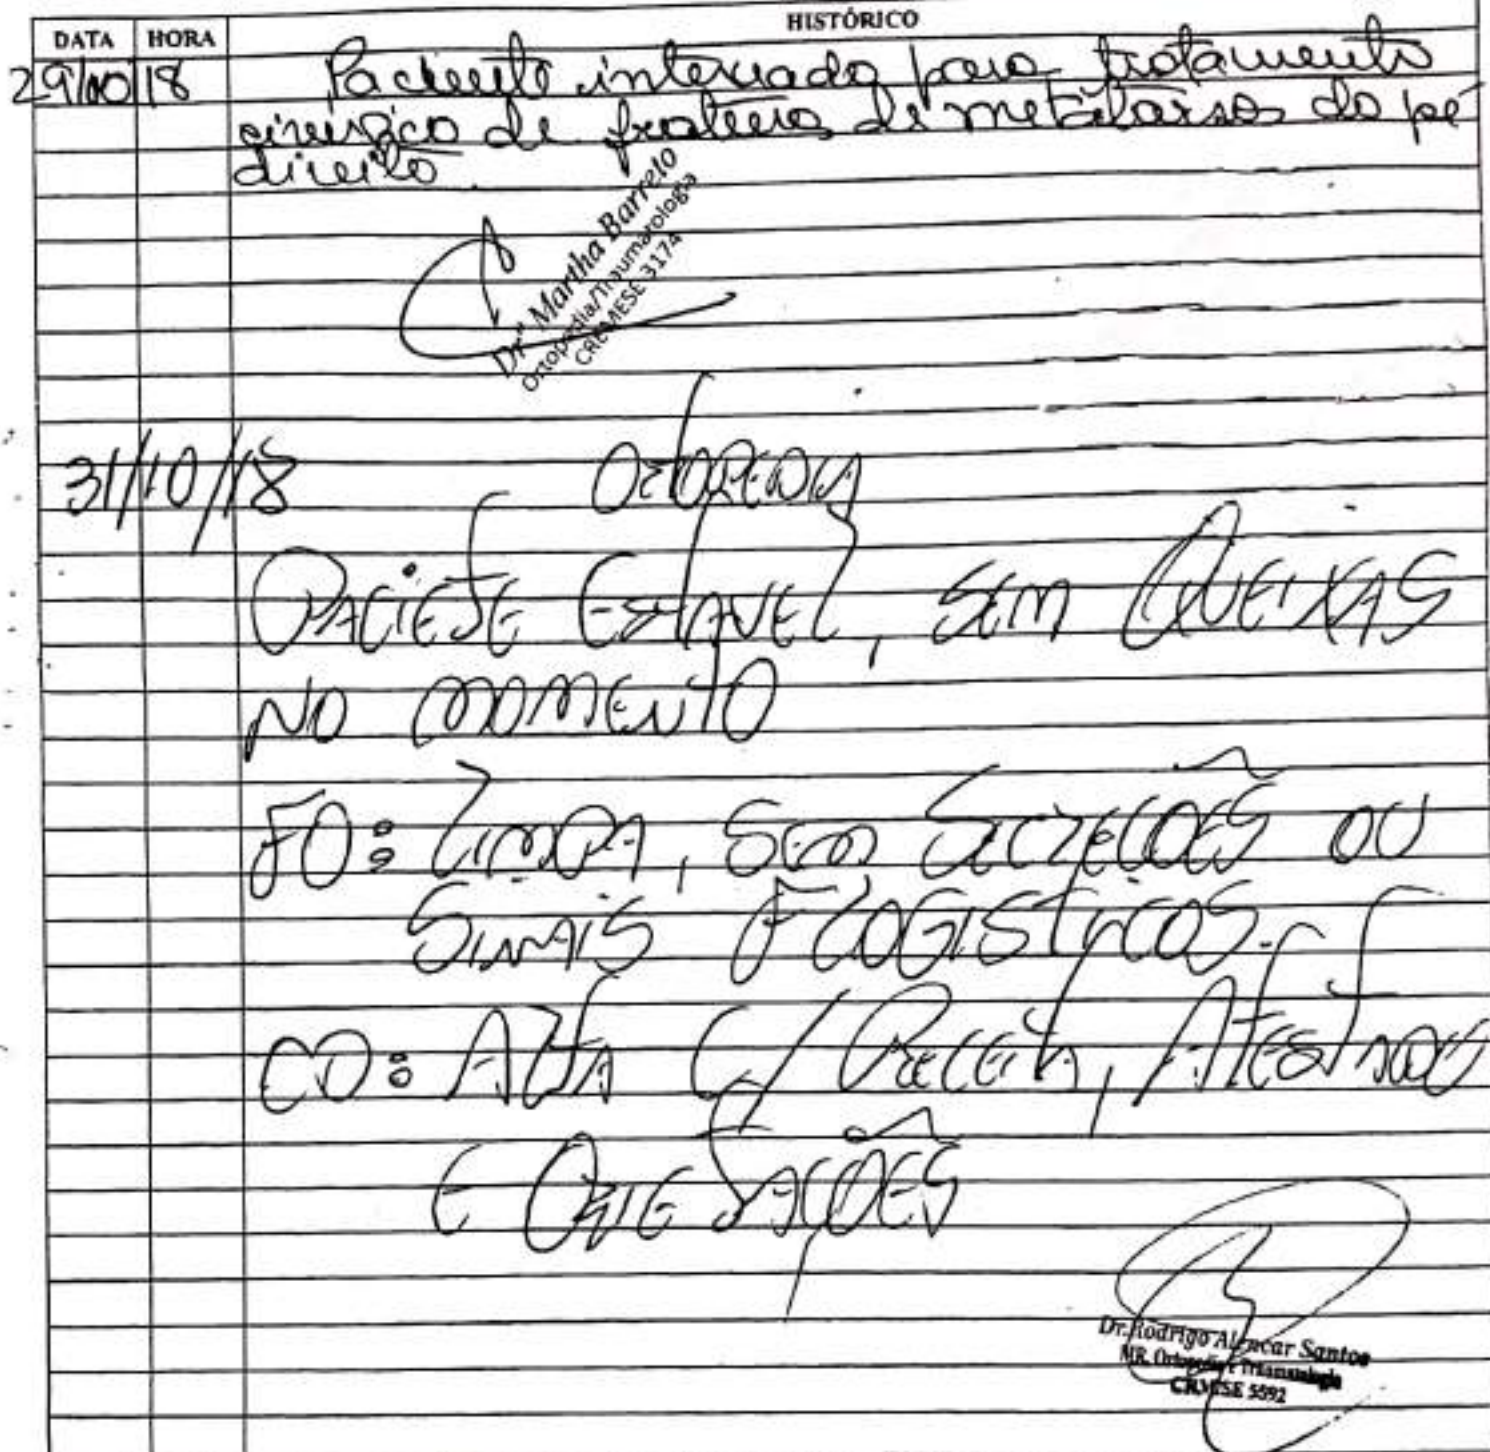 HISTÓRICO
DATA HORA
29/10/18 Paciente internado para tratamento
cirúrgico de fratura de metatarsos do pé
direito.
Drª Martha Barreto
Ortopedia/Traumatologia
CREMESE 3174
31/10/18 ORTOPEDIA
PACIENTE ESTÁVEL, SEM QUEIXAS
NO MOMENTO
FO: LIMPA, SEM SECREÇÕES OU
SINAIS FLOGÍSTICOS.
CD: ALTA C/ RECEITA, ATESTADO
E ORIENTAÇÕES
Dr. Rodrigo Alencar Santos
MR. Ortopedia e Traumatologia
CRM/SE 5592